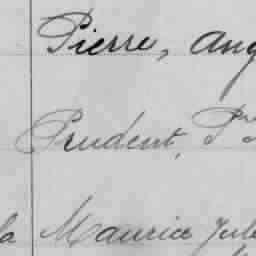 Pierre, Ang
Prudent, P
la Maurice Jul